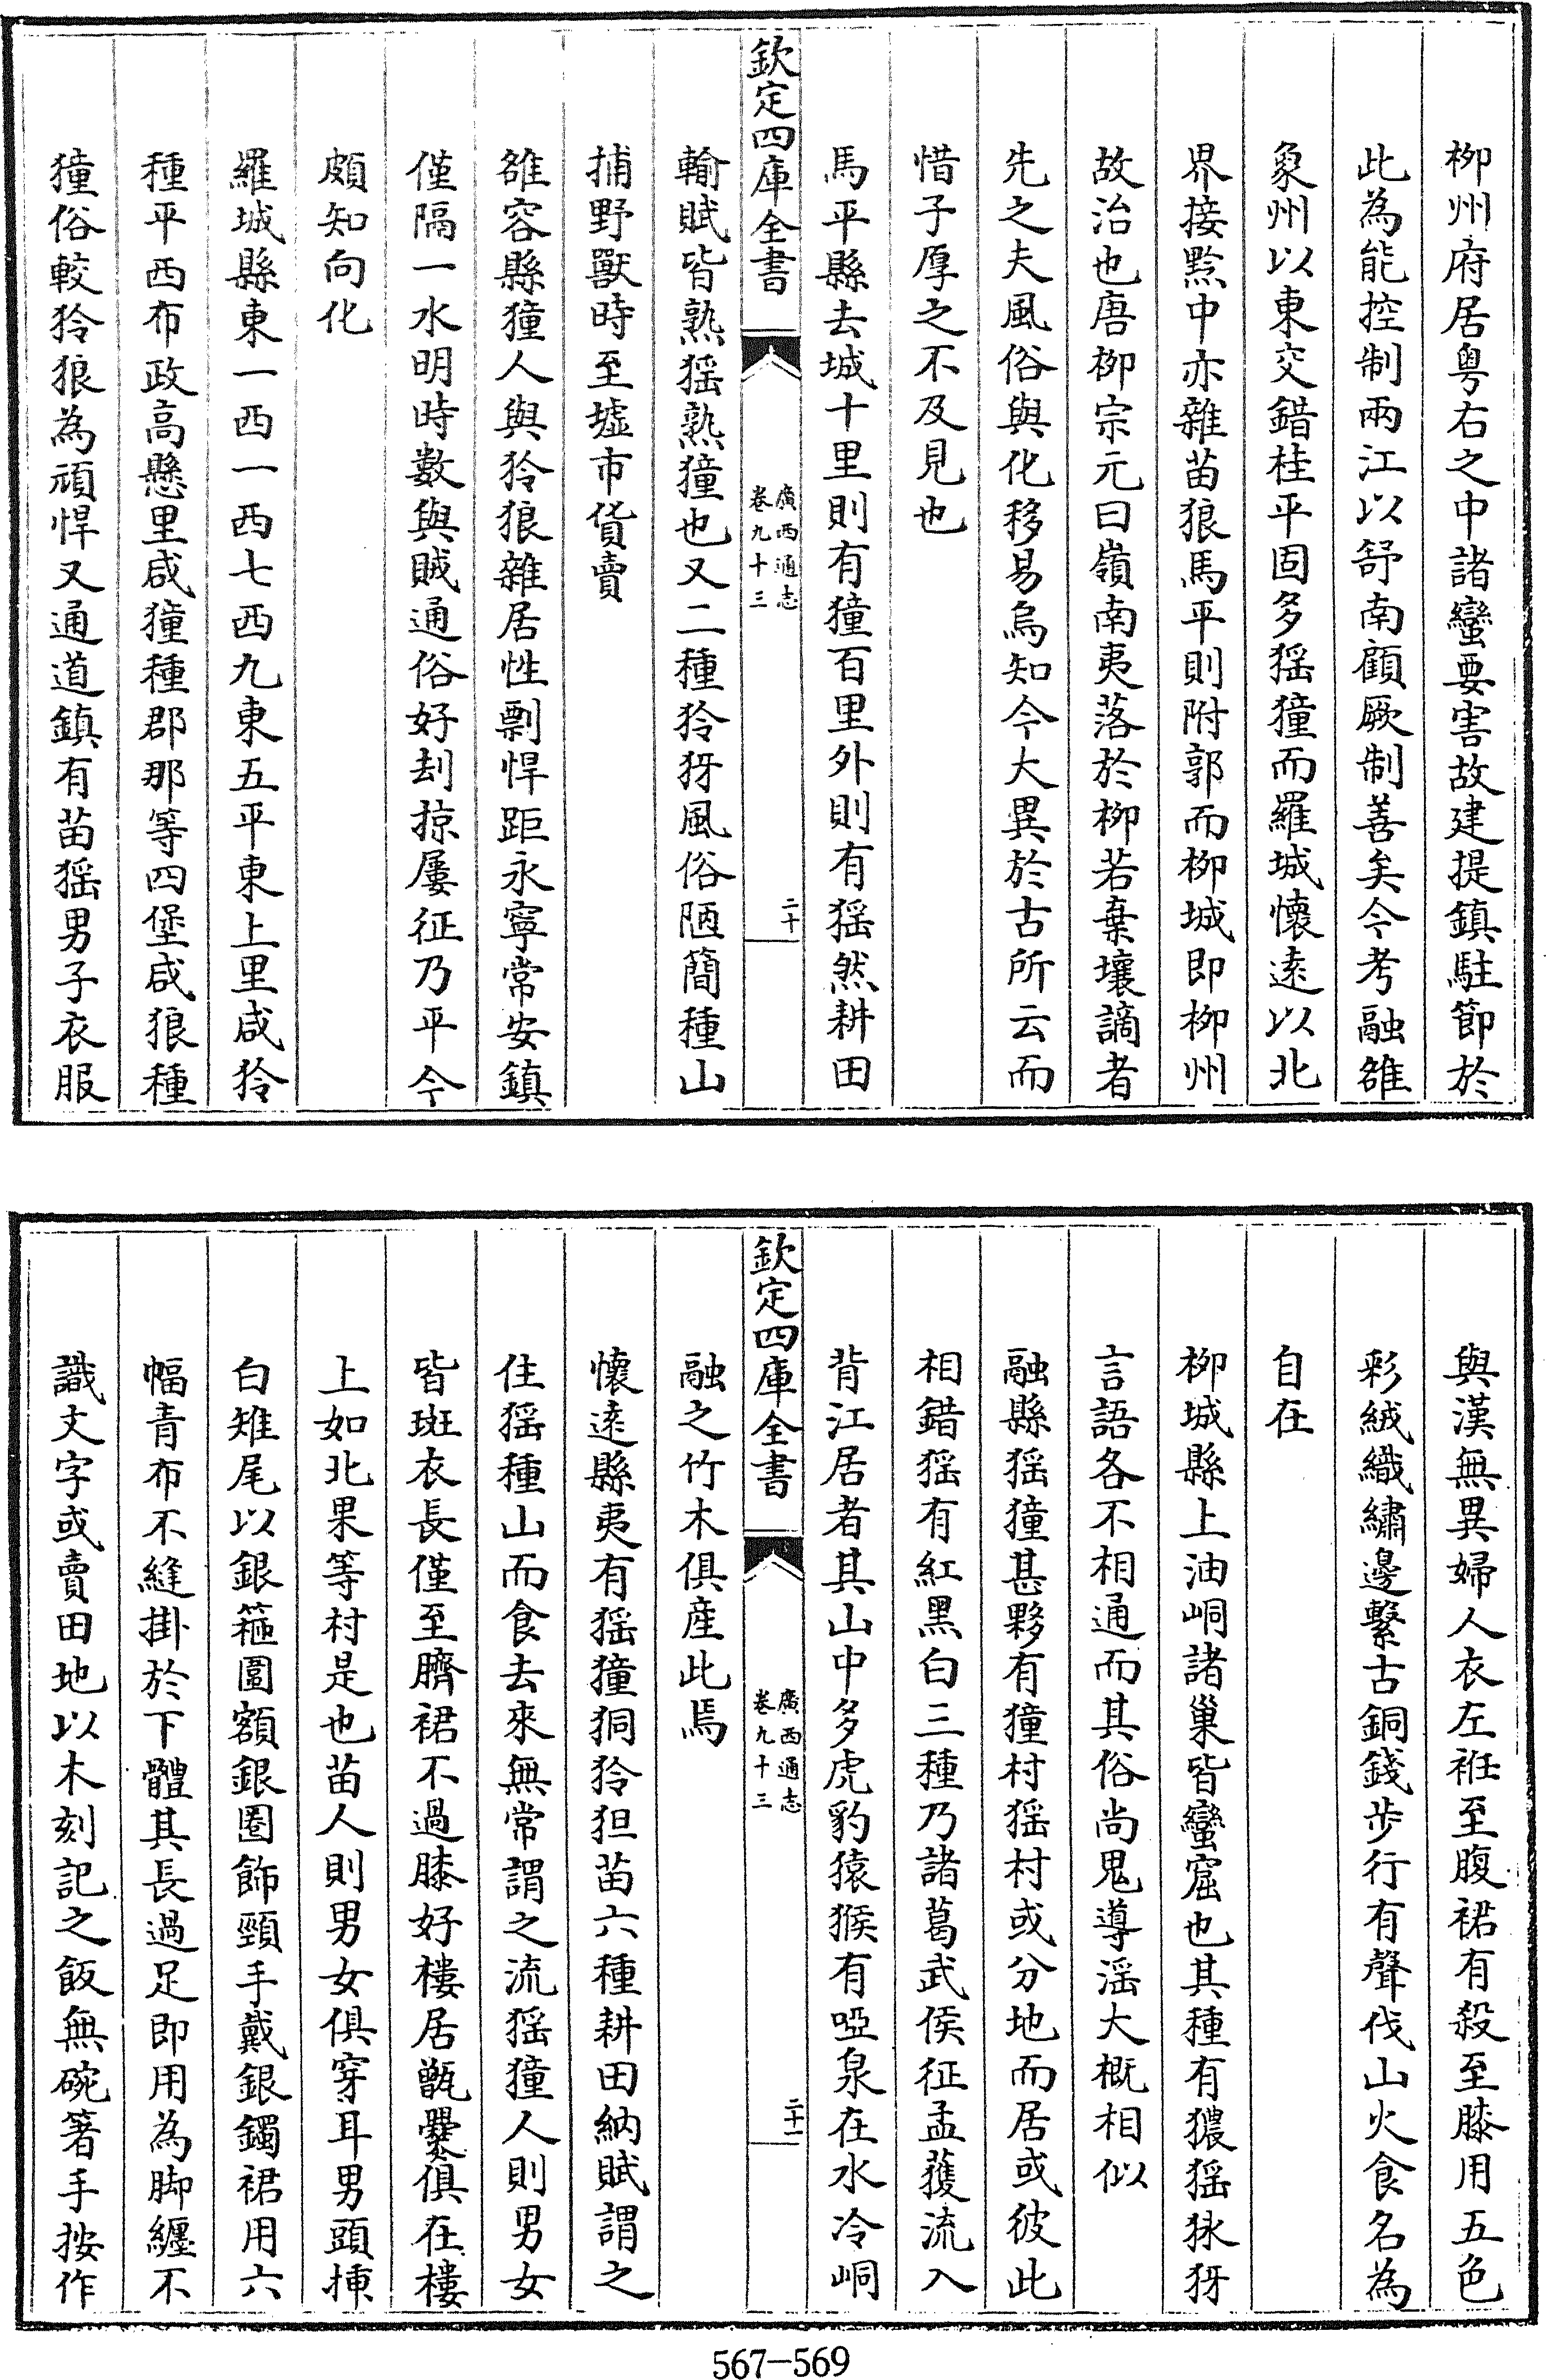 柳州府居粤右之中諸蠻要害故建提鎮駐節於
此為能控制兩江以舒南顧厥制善矣今考融雒
象州以東交錯桂平固多猺獞而羅城懷逺以北
界接黔中亦雜苗狼馬平則附郭而柳城即柳州
故治也唐柳宗元曰嶺南夷落於柳若棄壤謫者
先之夫風俗與化移易烏知今大異於古所云而
惜子厚之不及見也
馬平縣去城十里則有獞百里外則有猺然耕田
欽定四庫全書
廣西通志
卷九十三
二十
輸賦皆熟猺熟獞也又二種狑犽風俗陋簡種山
捕野獸時至墟市貨賣
雒容縣獞人與狑狼雜居性剽悍距永寧常安鎮
僅隔一水明時數與賊通俗好刦掠屢征乃平今
頗知向化
羅城縣東一西一西七西九東五平東上里咸狑
種平西布政高懸里咸獞種郡那等四堡咸狼種
獞俗較狑狼為頑悍又通道鎮有苗猺男子衣服
與漢無異婦人衣左袵至腹裙有殺至膝用五色
彩絨織繡邊繫古銅錢步行有聲伐山火食名為
自在
柳城縣上油峒諸巢皆蠻窟也其種有獽猺狇犽
言語各不相通而其俗尚鬼導淫大概相似
融縣猺獞甚夥有獞村猺村或分地而居或彼此
相錯猺有紅黑白三種乃諸葛武侯征孟獲流入
背江居者其山中多虎豹猿猴有啞泉在水冷峒
欽定四庫全書
廣西通志
卷九十三
二十一
融之竹木俱産此焉
懷逺縣夷有猺獞狪狑狚苗六種耕田納賦謂之
住猺種山而食去來無常謂之流猺獞人則男女
皆斑衣長僅至臍裙不過膝好樓居甑爨俱在樓
上如北果等村是也苗人則男女俱穿耳男頭揷
白雉尾以銀箍圍額銀圏飾頸手戴銀鐲裙用六
幅青布不縫掛於下體其長過足即用為脚纒不
識丈字或賣田地以木刻記之飯無碗箸手按作
567—569